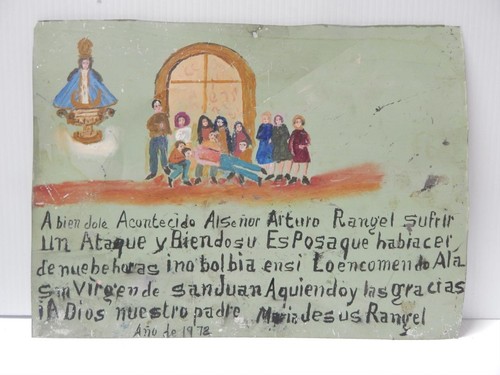 Abien dole Acontecido Alseñor Arturo Rangel sufrir
un Ataque y Biendosu Esposaque habiacer
denuebehoras inobolbia ensi Loencomendo Alá
San Virgende sanJuan Aquiendoy lasgracias
iA Dios nuestro padre Maria Jesus Rangel
Año de 1978